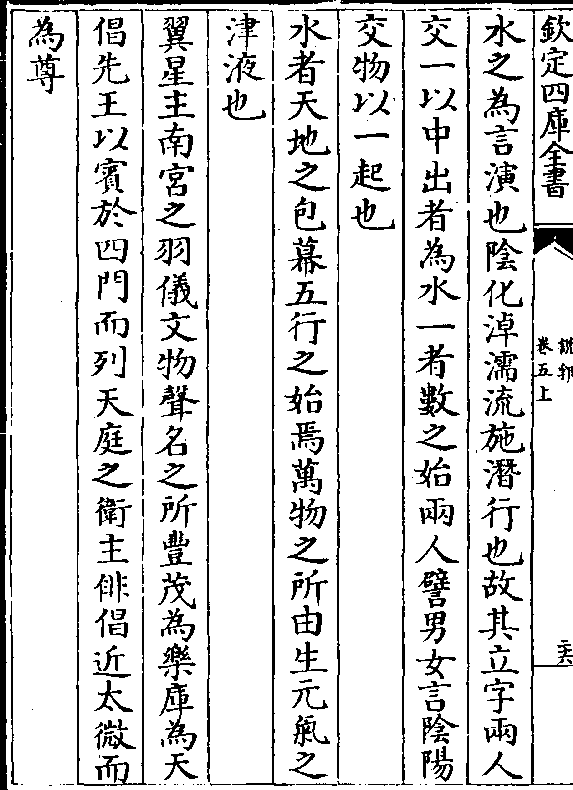 欽定四庫全書
說郛
卷五上
二六
水之為言演也陰化淖濡流施潛行也故其立字兩人
交一以中出者為水一者數之始兩人譬男女言陰陽
交物以一起也
水者天地之包幕五行之始焉萬物之所由生元氣之
津液也
翼星主南宮之羽儀文物聲名之所豐茂為樂庫為天
倡先王以賓於四門而列天庭之衛主俳倡近太微而
為尊